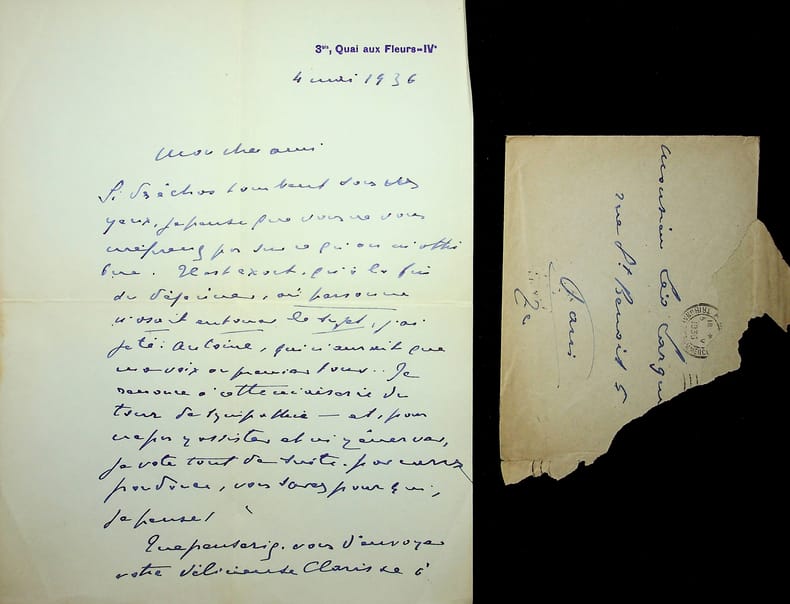 3bis, Quai aux Fleurs-IVe
4 mai 1936
Mon cher ami
Si des échos tombent sous les
yeux, je pense que vous ne vous
méprenez pas sur ce qu'on m'attri
bue. Il est exact, qu'à la fin
du déjeuner, où personne
n'osait entamer le sujet, j'ai
jeté: Antoine, qui n'aurait que
ma voix au premier tour.. Je
renonce à cette niaiserie du
tour de sympathie — et, pour
ne pas y assister et m'y énerver,
je vote tout de suite. par
prudence, vous savez pour qui,
je pense!
Que penseriez-vous d'envoyer
votre délicieuse Clarisse à
Monsieur Léo Largu
rue St Benoit 5
Paris
1936